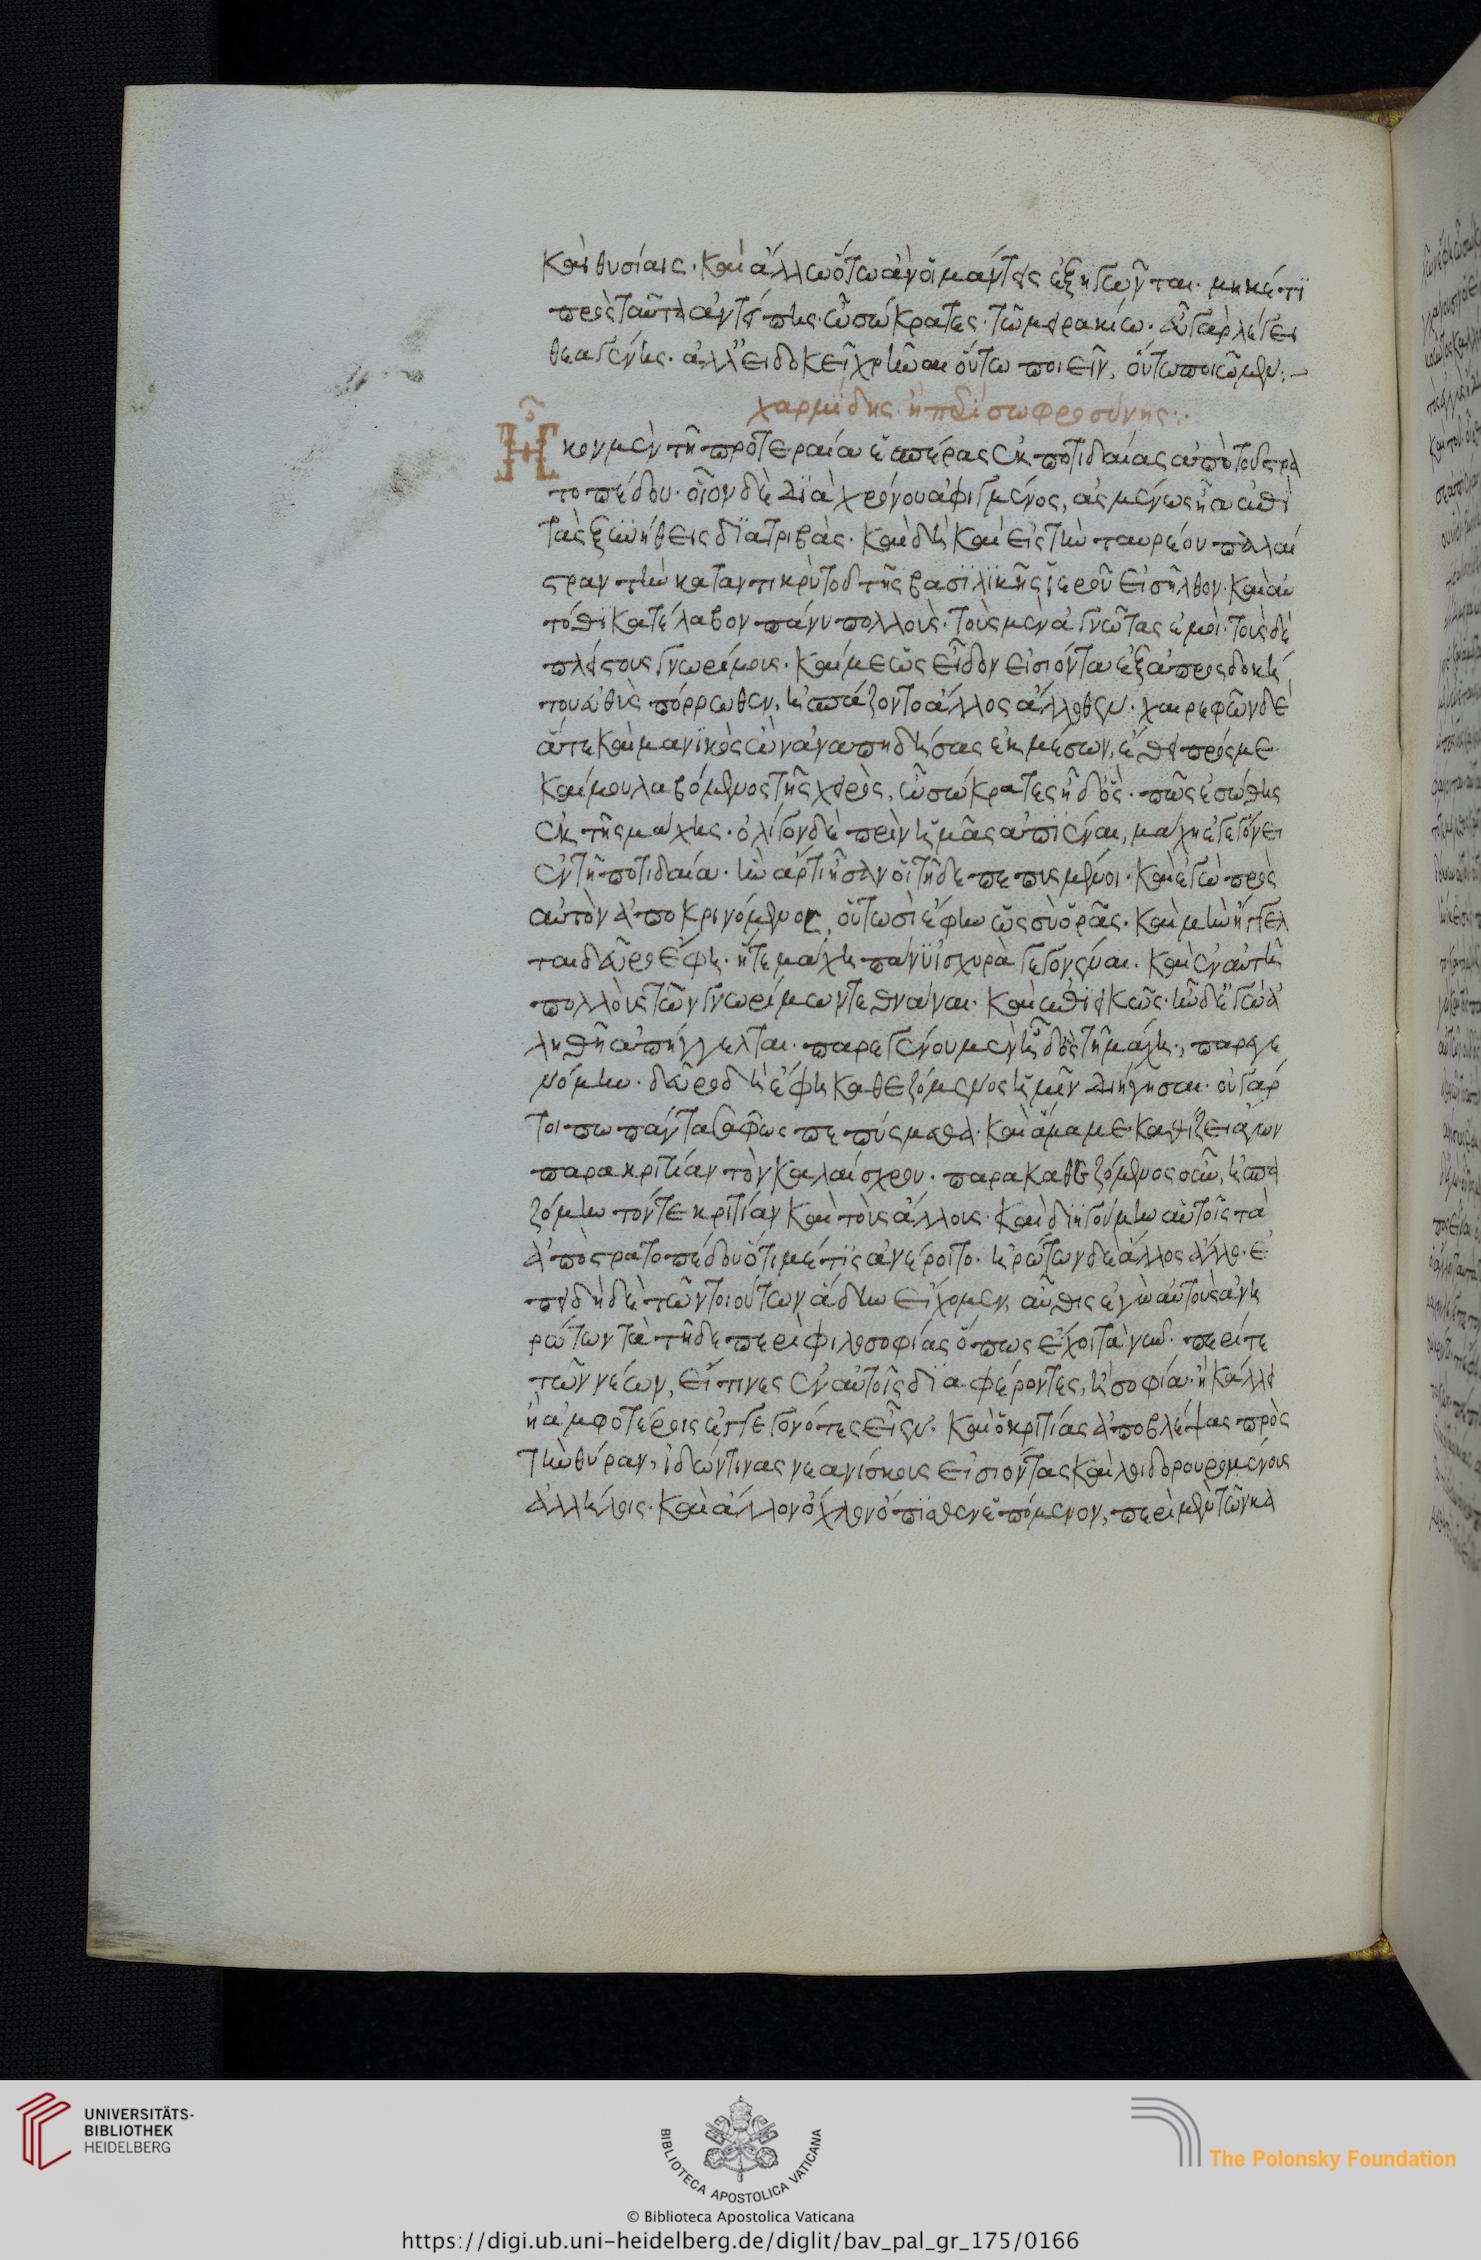 καὶ θυσίαις. καὶ ἄλλω ὅτω ἂν οἱ μάντεις ἐξηγῶνται. μηκέτι
πρὸς ταῦτα ἀντείπης. ὦ σώκρατες. τῶ μειρακίω. εὖ γὰρ λέγει
θεαγένης. ἀλλ' εἰ δοκεῖ χρῆναι οὕτω ποιεῖν, οὕτω ποιῶμεν:—
χαρμίδης ἢ περὶ σωφροσύνης:·
Ἧκον μὲν τῆ προτεραία ἑσπέρας ἐκ ποτιδαίας ἀπὸ τοῦ στρα
τοπέδου. οἷον δὲ διὰ χρόνου ἀφιγμένος, ἀσμένως ἦα ἐπὶ
τὰς ξυνήθεις διατριβάς. καὶ δὴ καὶ εἰς τὴν ταυρέου παλαί
στραν τὴν καταντικρὺ τοῦ τῆς βασιλικῆς ἱεροῦ εἰσῆλθον. καὶ αὐ
τόθι κατέλαβον πάνυ πολλοὺς. τοὺς μὲν ἀγνῶτας ἐμοὶ. τοὺς δὲ
πλείστους γνωρίμους. καί με ὡς εἶδον εἰσιόντα ἐξ ἀπροσδοκή
του εὐθὺς πόρρωθεν, ἠσπάζοντο ἄλλος ἄλλοθεν. χαιρεφῶν δὲ
ἅτε καὶ μανικὸς ὢν ἀναπηδήσας ἐκ μέσων, ἔθει πρός με
καί μου λαβόμενος τῆς χειρὸς, ὦ σώκρατες ἦ δ' ὃς. πῶς ἐσώθης
ἐκ τῆς μάχης. ὀλίγον δὲ πρὶν ἡμᾶς ἀπιέναι, μάχη ἐγεγόνει
ἐν τῆ ποτιδαία. ἣν ἄρτι ἦσαν οἱ τῆδε πεπυσμένοι. καὶ ἐγὼ πρὸς
αὐτὸν ἀποκρινόμενος, οὑτωσὶ ἔφην ὡς σὺ ὁρᾶς. καὶ μὴν ἤγγελ
ται δεῦρο ἔφη. ἥ τε μάχη πάνυ ἰσχυρὰ γεγονέναι. καὶ ἐν αὐτῆ
πολλοὺς τῶν γνωρίμων τεθνάναι. καὶ ἐπιεικῶς. ἦν δ' ἐγὼ ἀ
ληθῆ ἀπήγγελται. παρεγένου μὲν ἦ δ' ὃς τῆ μάχη; παρεγε
νόμην. δεῦρο δὴ ἔφη καθεζόμενος ἡμῖν διήγησαι. οὐ γάρ
τοί πω πάντα σαφῶς πεπύσμεθα. καὶ ἅμα με καθίζει ἄγων
παρὰ κριτίαν τὸν καλαίσχρου. παρακαθεζόμενος οὖν, ἠσπα
ζόμην τόν τε κριτίαν καὶ τοὺς ἄλλους. καὶ διηγούμην αὐτοῖς τὰ
ἀπὸ στρατοπέδου ὅτι μέ τις ἀνέροιτο. ἠρώτων δὲ ἄλλος ἄλλο. ἐ
πειδὴ δὲ τῶν τοιούτων ἅδην εἴχομεν, αὖθις ἐγὼ αὐτοὺς ἀνη
ρώτων τὰ τῆδε περὶ φιλοσοφίας ὅπως ἔχοι τὰ νῦν. περί τε
τῶν νέων, εἴ τινες ἐν αὐτοῖς διαφέροντες, ἢ σοφία. ἢ κάλλει
ἢ ἀμφοτέροις ἐγγεγονότες εἶεν. καὶ ὁ κριτίας ἀποβλέψας πρὸς
τὴν θύραν, ἰδών τινας νεανίσκους εἰσιόντας καὶ λοιδορουρομένους
ἀλλήλοις. καὶ ἄλλον ὄχλον ὄπισθεν ἑπόμενον, περὶ μὲν τῶν κα
UNIVERSITÄTS-
BIBLIOTHEK
HEIDELBERG
BIBLIOTECA APOSTOLICA VATICANA
The Polonsky Foundation
© Biblioteca Apostolica Vaticana
https://digi.ub.uni-heidelberg.de/diglit/bav_pal_gr_175/0166